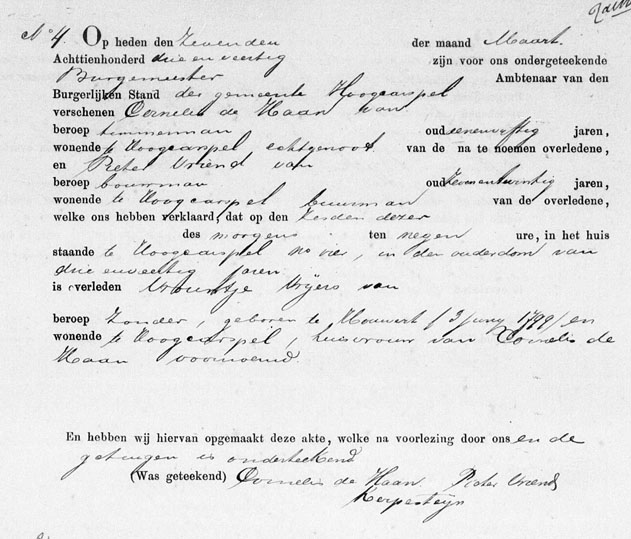 N° 4. Op heden den zevenden der maand Maart
Achttienhonderd drie en veertig zijn voor ons ondergeteekende
Burgemeester Ambtenaar van den
Burgerlijken Stand der gemeente Hoogcarspel
verschenen Cornelis de Haan van
beroep timmerman oud eenenvijftig jaren,
wonende te Hoogcarspel echtgenoot van de na te noemen overledene,
en Pieter Vriend van
beroep bouwman oud zevenentwintig jaren,
wonende te Hoogcarspel buurman van de overledene,
welke ons hebben verklaard, dat op den zesden dezer
des morgens ten negen ure, in het huis
staande te Hoogcarspel no vier, in den ouderdom van
drie en veertig jaren
is overleden Trijers van
beroep zonder, geboren te (3 Juny 1799) en
wonende te Hoogcarspel, huisvrouw van Cornelis de
Haan voornoemd.
En hebben wij hiervan opgemaakt deze akte, welke na voorlezing door ons en de
getuigen is onderteekend
(Was geteekend) Cornelis de Haan. Pieter Vriend
Kerpesteyn